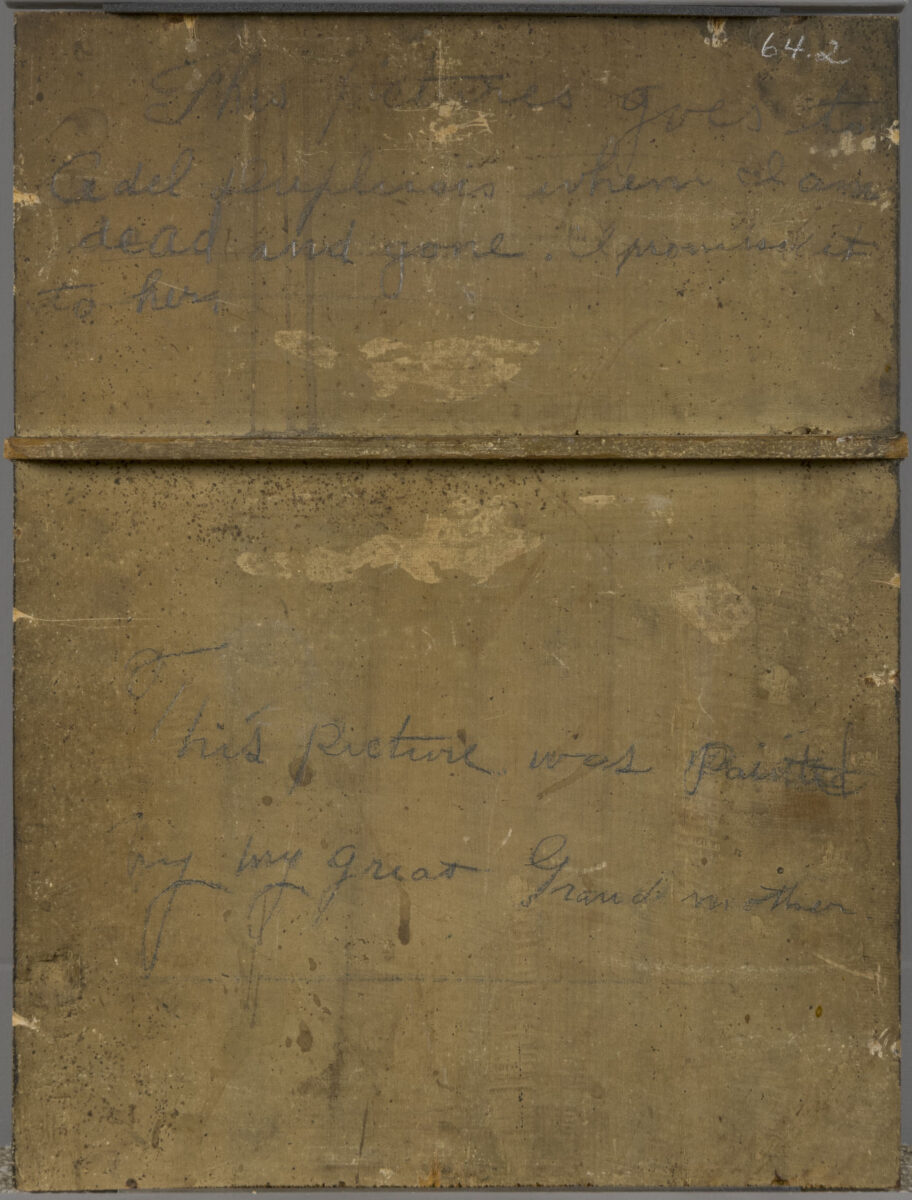 64.2
This pictures goes to
Adel when I am
dead and gone. I promised it
to her.
This picture was painted
by my great Grand mother